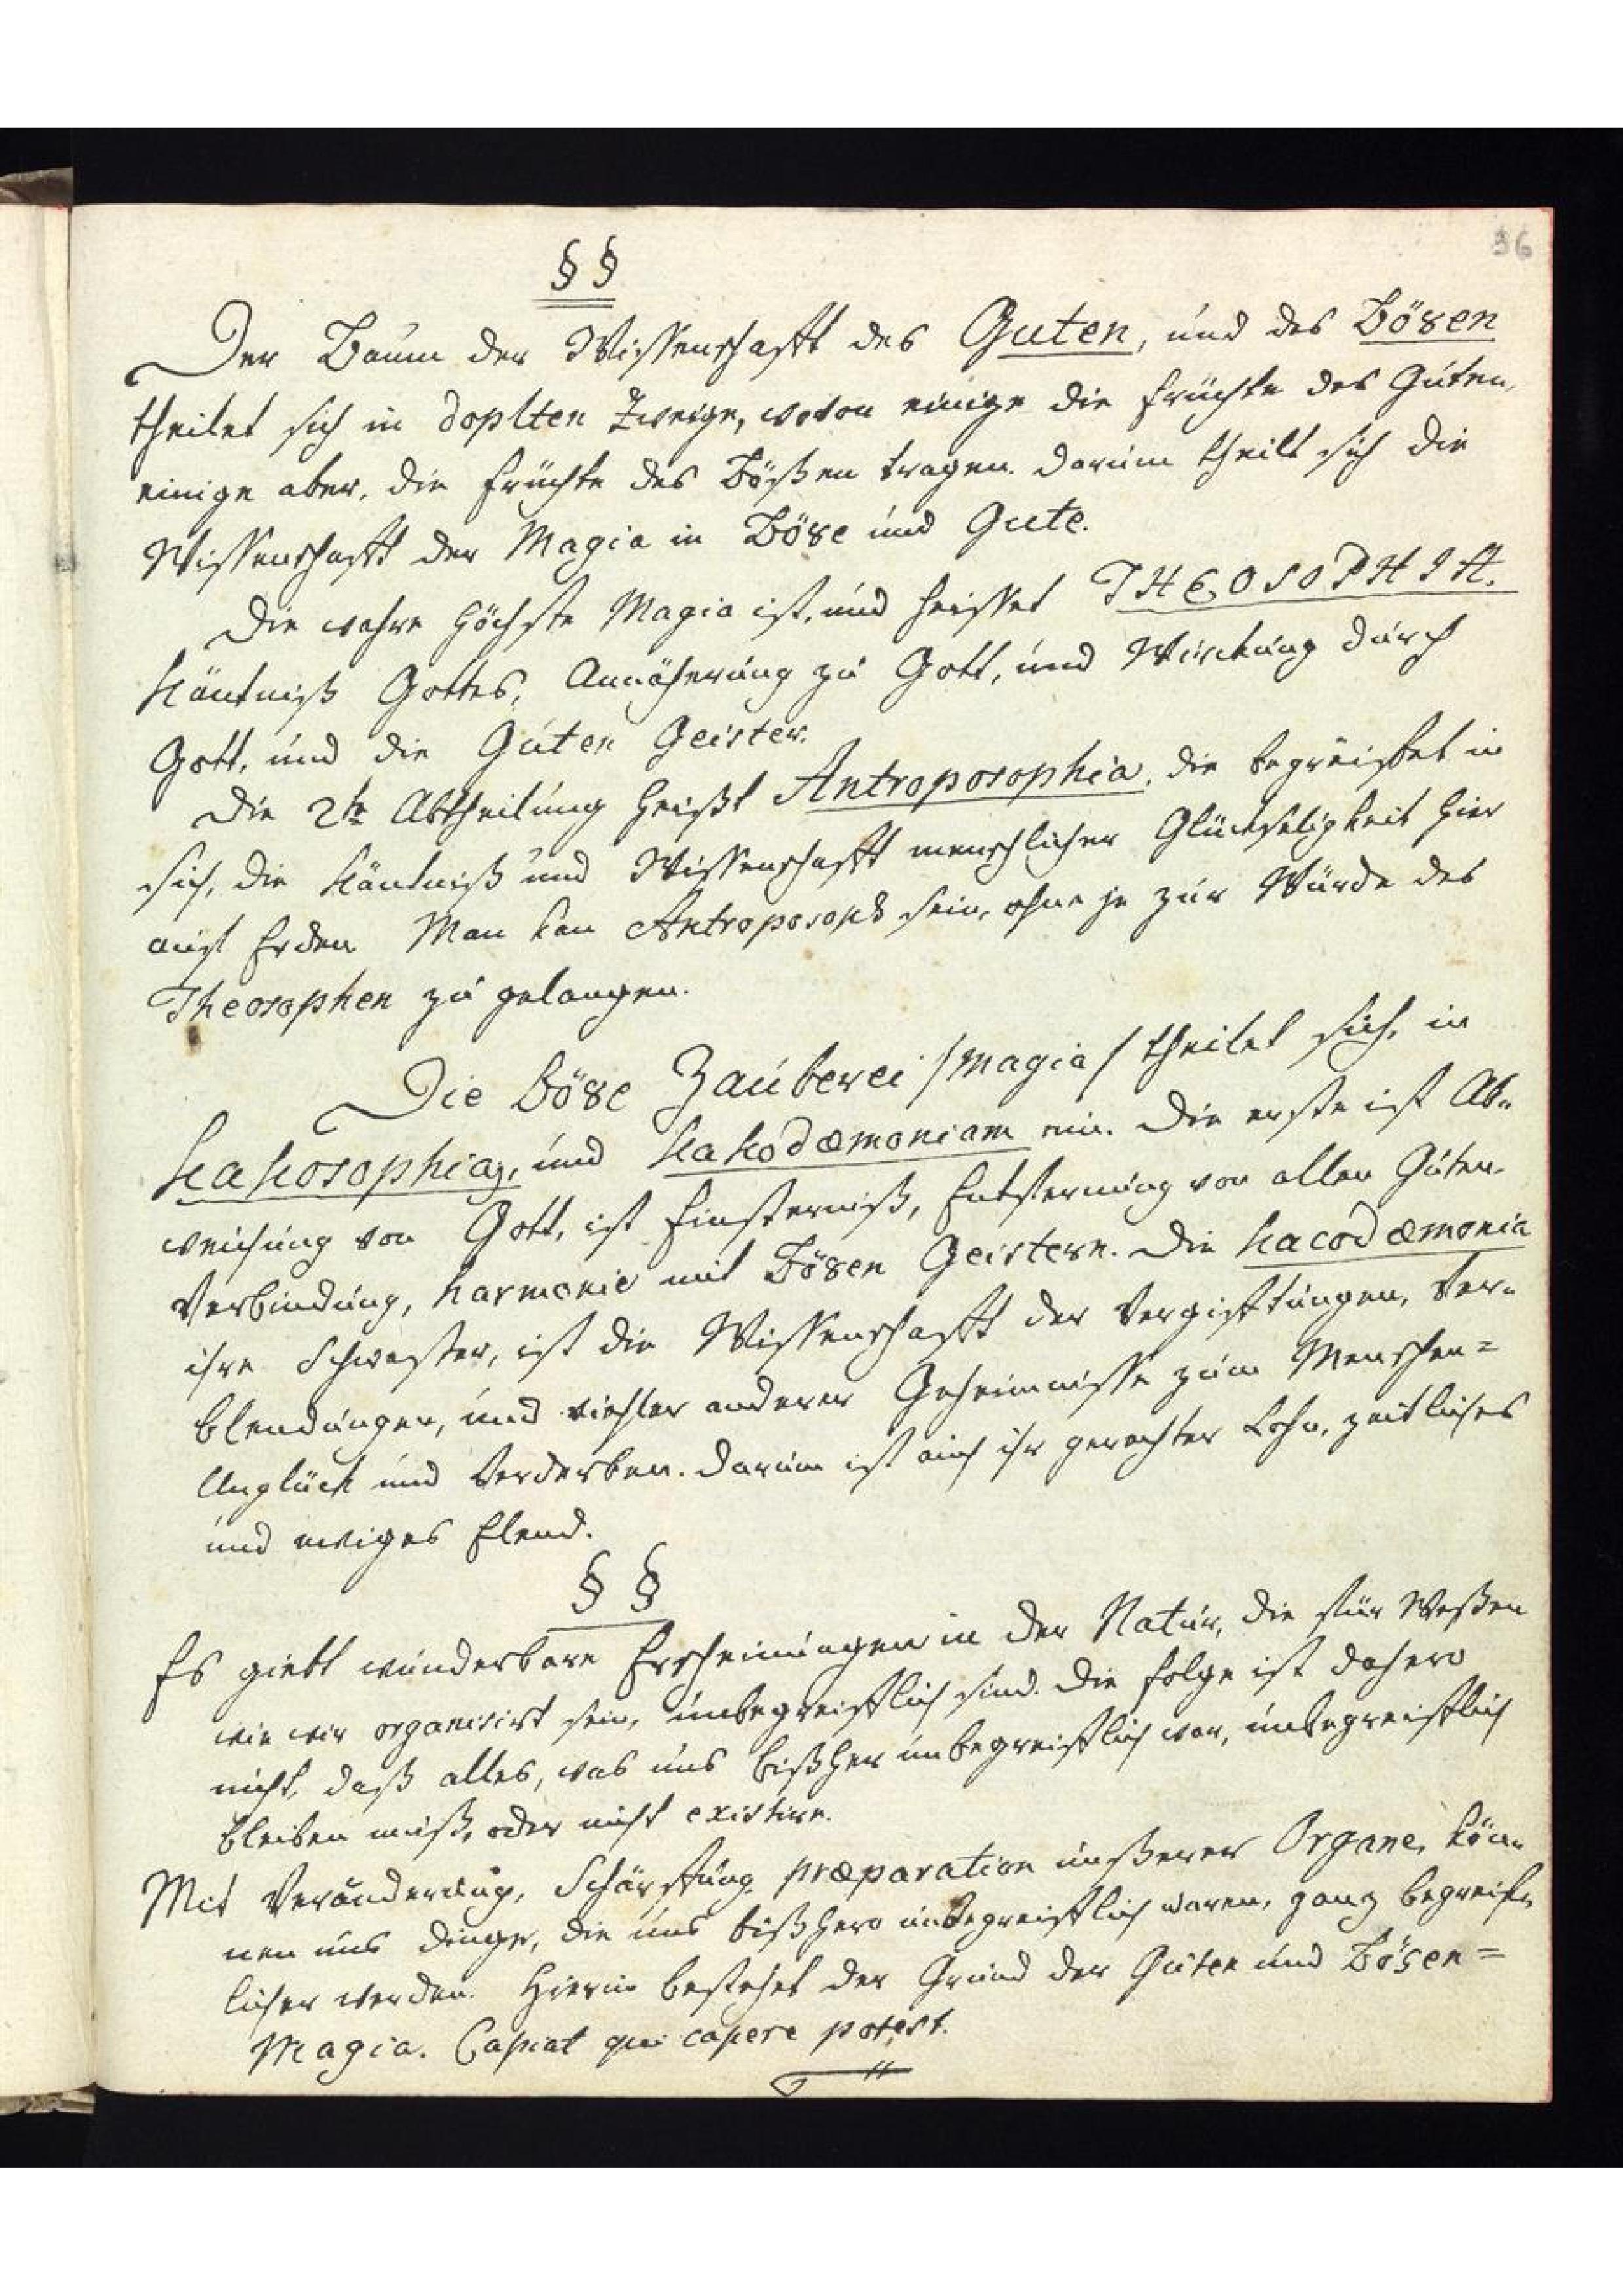 36
§ §
Der Baum der Wissenschafft des Guten, und des Bösen
theilet sich in doplten Zweige, wovon einige die früchte des Guten,
einige aber, die früchte des Bößen tragen. Darum theilt sich die
Wissenschafft der Magia in Böse und Gute.
Die wahre höchste Magia ist, und heisset THEOSOPHIA.
Käntniß Gottes, Annäherung zu Gott, und Würckung durch
Gott, und die Guten Geister.
Die 2te Abtheilung heißt Antroposophia, die begreiffet in
sich, die Käntniß und Wissenschafft menschlicher Glückseligkeit hier
auf Erden Man kan Antroposoph sein, ohne je zur Würde des
Theosophen zu gelangen.
Die Böse Zauberei /Magia/ theilet sich, in
Kakosophiam, und Kakodæmoniam ein. Die erste ist Ab-
weichung von Gott, ist Finsterniß, Entfernung von allen Guten.
Verbindung, harmonie mit Bösen Geistern. Die Kacodæmonia
ihre Schwester, ist die Wissenschafft der Vergifftungen, Ver-
blendungen, und viehler anderer Geheimnisse zum Menschen=
Unglück und Verderben. Darum ist auch ihr gerechter Lohn, zeitliches
und ewiges Elend.
§ §
Es giebt wunderbare Erscheinungen in der Natur, die für Weßen
wie wir organisirt sein, unbegreifflich sind. Die folge ist dahero
nicht, daß alles, was uns bißher unbegreifflich war, unbegreifflich
bleiben muß, oder nicht existire.
Mit Veränderung, Schärffung, præparation unßerer Organe, kön-
nen uns dinge, die uns bißhero unbegreifflich waren, ganz begreif-
licher werden. Hierin bestehet der Grund der Guten und Bösen=
Magia. Capiat qui capere potest.